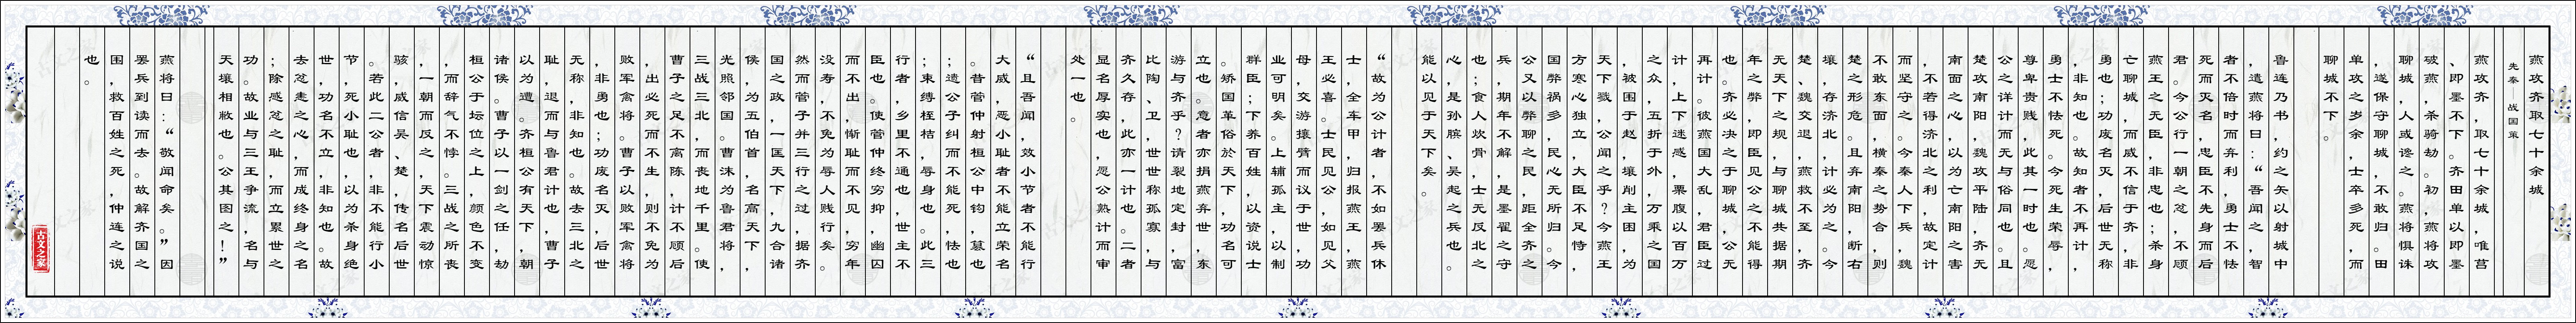 燕攻齐取七十余城
先秦—战国策
燕攻齐，取七十余城，唯莒
、即墨不下。齐田单以即墨
破燕，杀骑劫。初，燕将攻
聊城，人或谗之。燕将惧诛
，遂保守聊城，不敢归。田
单攻之岁余，士卒多死，而
聊城不下。
鲁连乃书，约之矢以射城中
，遗燕将曰：“吾闻之，智
者不倍时而弃利，勇士不怯
死而灭名，忠臣不先身而后
君。今公行一朝之忿，不顾
燕王之无臣，非忠也；杀身
亡聊城，而威不信于齐，非
勇也；功废名灭，后世无称
，非知也。故知者不再计，
勇士不怯死。今死生荣辱，
尊卑贵贱，此其一时也。愿
公之详计而无与俗同也。且
楚攻南阳，魏攻平陆，齐无
南面之心，以为亡南阳之害
，不若得济北之利，故定计
而坚守之。今秦人下兵，魏
不敢东面，横秦之势合，则
楚之形危。且弃南阳，断右
壤，存济北，计必为之。今
楚、魏交退，燕救不至，齐
无天下之规，与聊城共据期
年之弊，即臣见公之不能得
也。齐必决之于聊城，公无
再计。彼燕国大乱，君臣过
计，上下迷惑，栗腹以百万
之众，五折于外，万乘之国
，被围于赵，壤削主困，为
天下戮，公闻之乎？今燕王
方寒心独立，大臣不足恃，
国弊祸多，民心无所归。今
公又以弊聊之民，距全齐之
兵，期年不解，是墨翟之守
也；食人炊骨，士无反北之
心，是孙膑、吴起之兵也。
能以见于天下矣。
“故为公计者，不如罢兵休
士，全车甲，归报燕王，燕
王必喜。士民见公，如见父
母，交游攘臂而议于世，功
业可明矣。上辅孤主，以制
群臣；下养百姓，以资说士
。矫国革俗于天下，功名可
立也。意者亦捐燕弃世，东
游与齐乎？请裂地定封，富
比陶、卫，世世称孤寡，与
齐久存，此亦一计也。二者
显名厚实也，愿公熟计而审
处一也。
“且吾闻，效小节者不能行
大威，恶小耻者不能立荣名
。昔管仲射桓公中钩，篡也
；遗公子纠而不能死，怯也
；束缚桎梏，辱身也。此三
行者，乡里不通也，世主不
臣也。使管仲终穷抑，幽囚
而不出，惭耻而不见，穷年
没寿，不免为辱人贱行矣。
然而管子并三行之过，据齐
国之政，一匡天下，九合诸
侯，为五伯首，名高天下，
光照邻国。曹沫为鲁君将，
三战三北，而丧地千里。使
曹子之足不离陈，计不顾后
，出必死而不生，则不免为
败军禽将。曹子以败军禽将
，非勇也；功废名灭，后世
无称，非知也。故去三北之
耻，退而与鲁君计也，曹子
以为遭。齐桓公有天下，朝
诸侯。曹子以一剑之任，劫
桓公于坛位之上，颜色不变
，而辞气不悖。三战之所丧
，一朝而反之，天下震动惊
骇，威信吴、楚，传名后世
。若此二公者，非不能行小
节，死小耻也，以为杀身绝
世，功名不立，非知也。故
去忿恚之心，而成终身之名
；除感忿之耻，而立累世之
功。故业与三王争流，名与
天壤相敝也。公其图之！”
燕将曰：“敬闻命矣。”因
罢兵到读而去。故解齐国之
围，救百姓之死，仲连之说
也。
古文之家